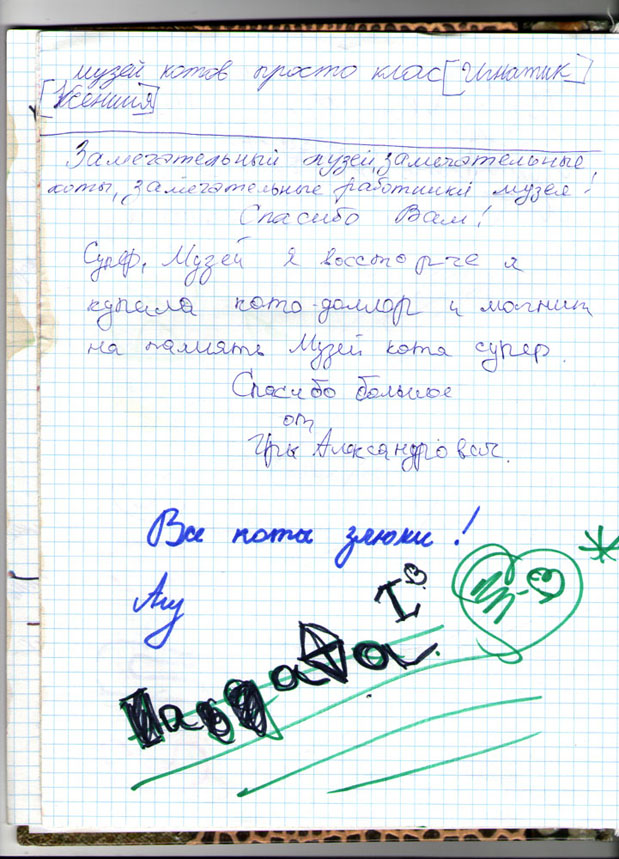 музей котов просто клас [Игнатик]
[Ксенишя]
Замечательный музей, замечательные
коты, замечательные работники музея!
Спасибо Вам!
Супер, Музей я восстргче я
купала кото-доллар и магнит
на память Музей кота супер.
Спасибо большое
от
Александровач.
Все коты злюки!
I